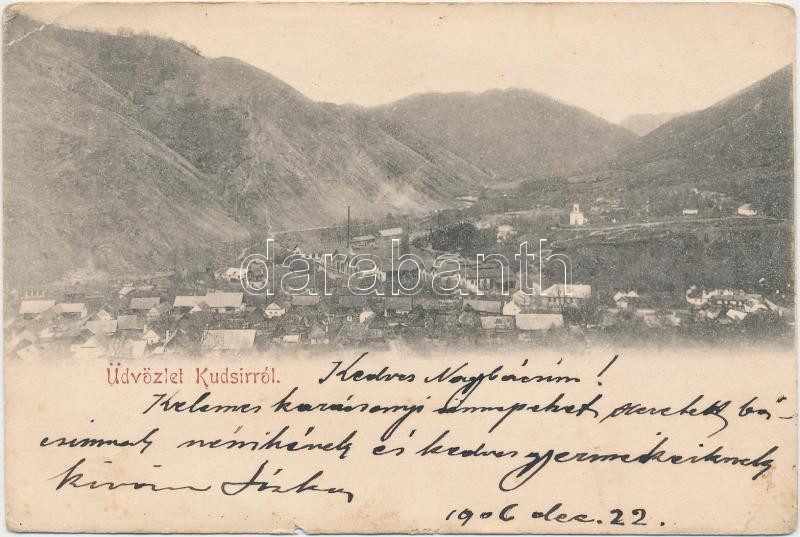 darabanth
Üdvözlet Kudsirról.
Kedves Nagybácsim!
Kelemes karácsonyi ünnepeket szeretett bá-
csimnak nénikének és kedves gyermekeiknek
kíván Józska
1906 dec. 22.